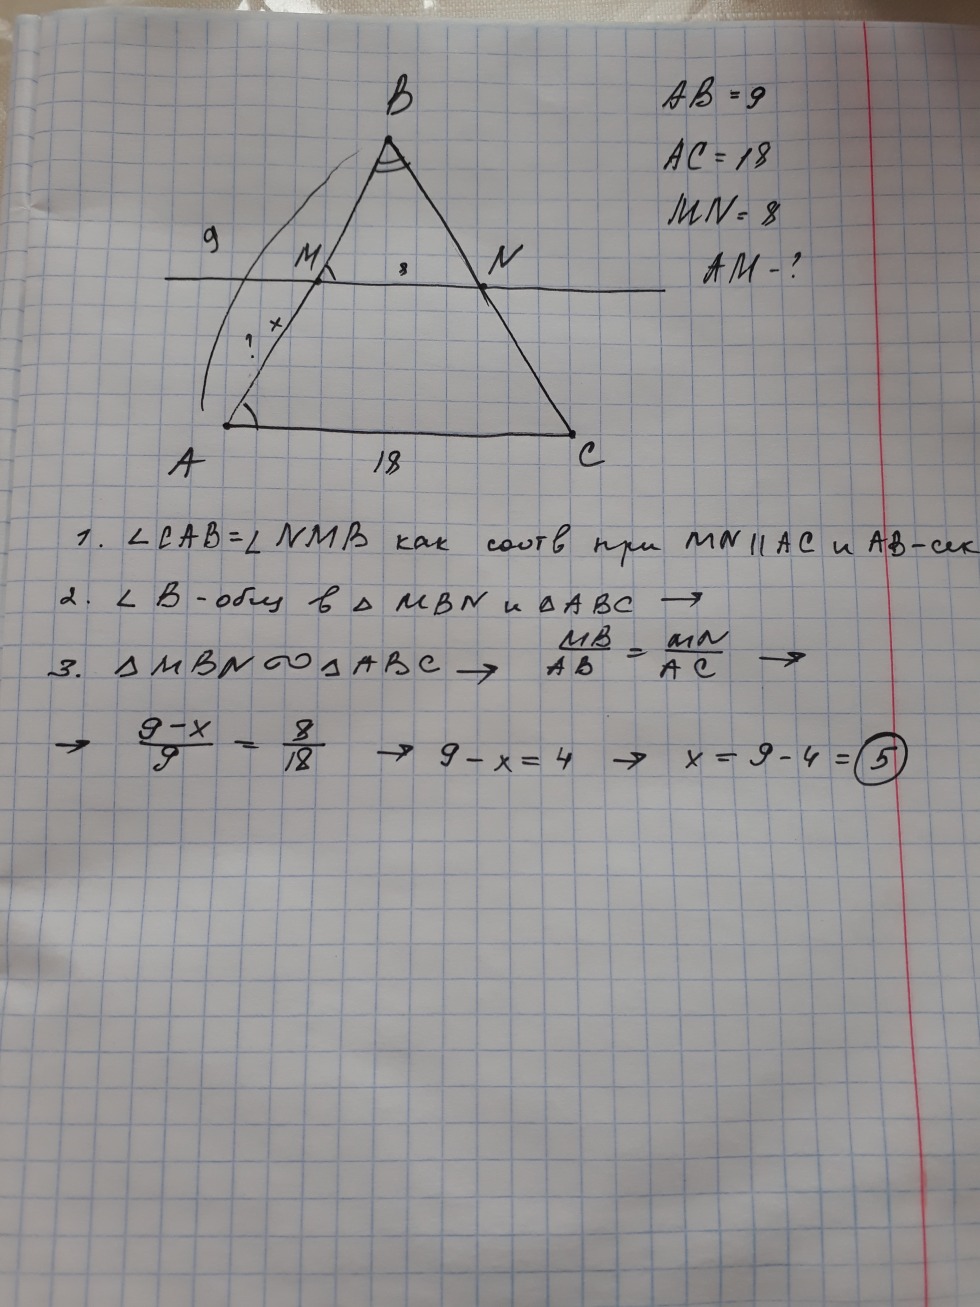 B
AB = 9
AC = 18
MN = 8
AM - ?
9
M
8
N
x
?
A
18
C
1. ∠CAB = ∠NMB как соотв при MN || AC и AB-сек
2. ∠B - общ в △MBN и △ABC →
3. △MBN ∾ △ABC → MB/AB = MN/AC →
→ 9-x/9 = 8/18 → 9-x = 4 → x = 9-4 = 5